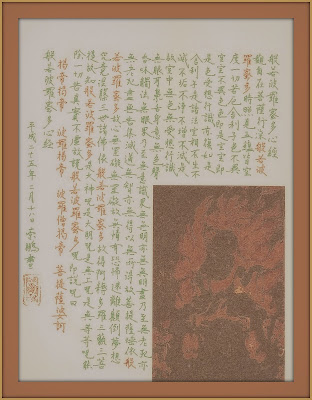 般若波羅蜜多心経
観自在菩薩行深般若波
羅蜜多時照見五蘊皆空
度一切苦厄舎利子色不異
空空不異色色即是空空即
是色受想行識亦復如是
舎利子是諸法空相不生不
滅不垢不浄不増不減是
故空中無色無受想行識
無眼耳鼻舌身意無色声
香味触法無眼界乃至無意識界無無明亦無無明尽乃至無老死亦
無老死尽無苦集滅道無智亦無得以無所得故菩提薩埵依般
若波羅蜜多故心無罣礙無罣礙故無有恐怖遠離顛倒夢想
究竟涅槃三世諸仏依般若波羅蜜多故得阿耨多羅三藐三菩
提故知般若波羅蜜多是大神呪是大明呪是無上呪是無等等呪能
除一切苦真実不虚故説般若波羅蜜多呪即説呪曰
羯帝羯帝 波羅羯帝 波羅僧羯帝 菩提薩婆訶
般若波羅蜜多心経
平成二十五年二月十八日 書